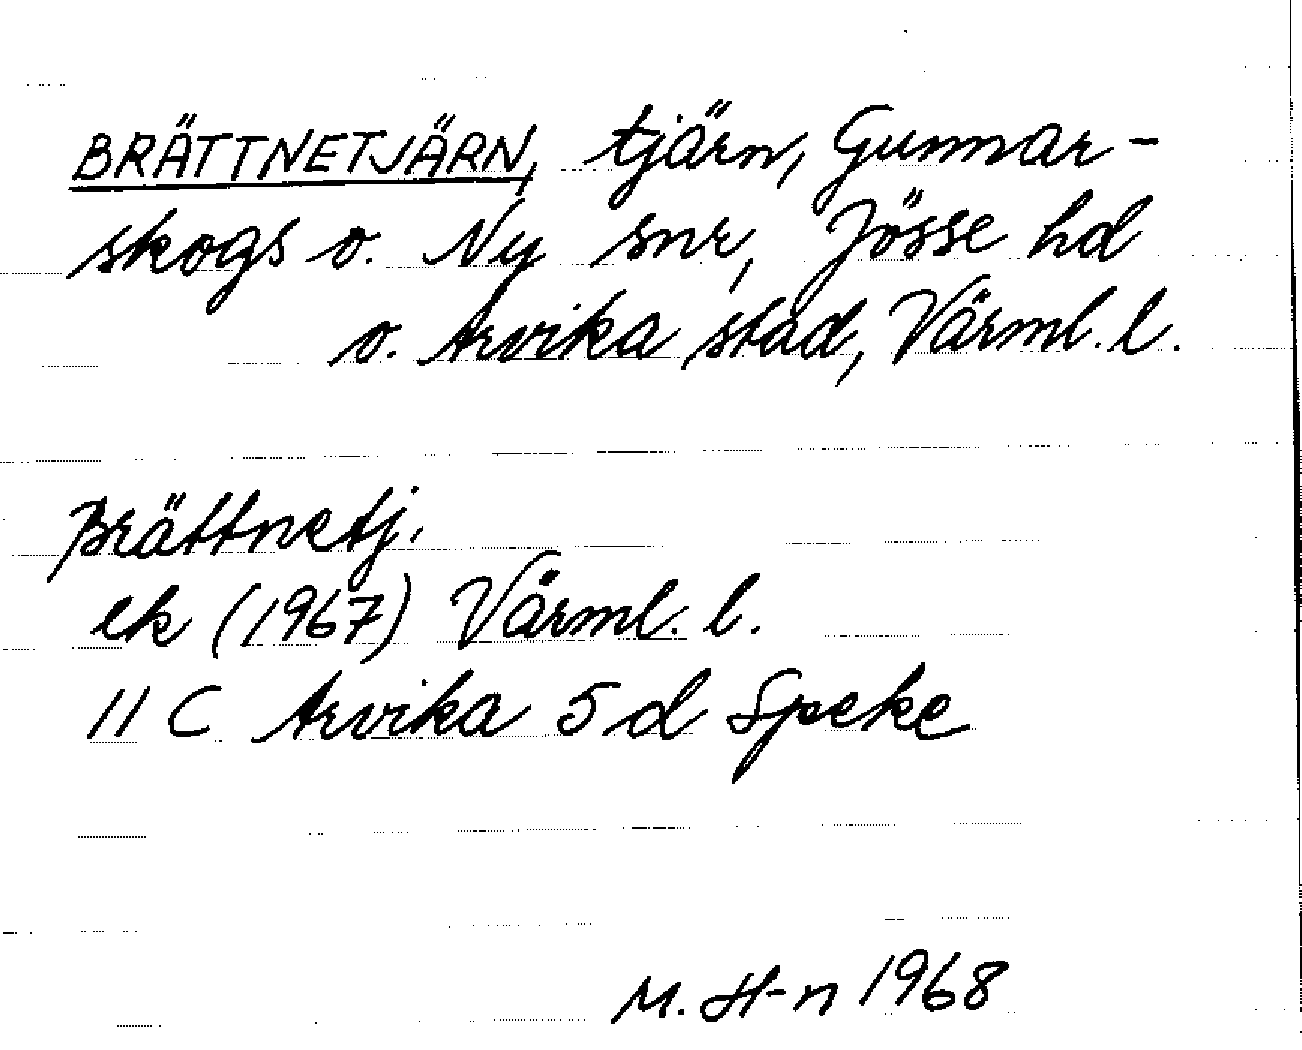 BRÄTTNETJÄRN, tjärn, Gunnar-
skogs o. Ny snr, Jösse hd
o. Arvika stad, Värml. l.
Brättnetj.
ek (1967) Värml. l.
11 C Arvika 5 d Speke
M. H-n 1968